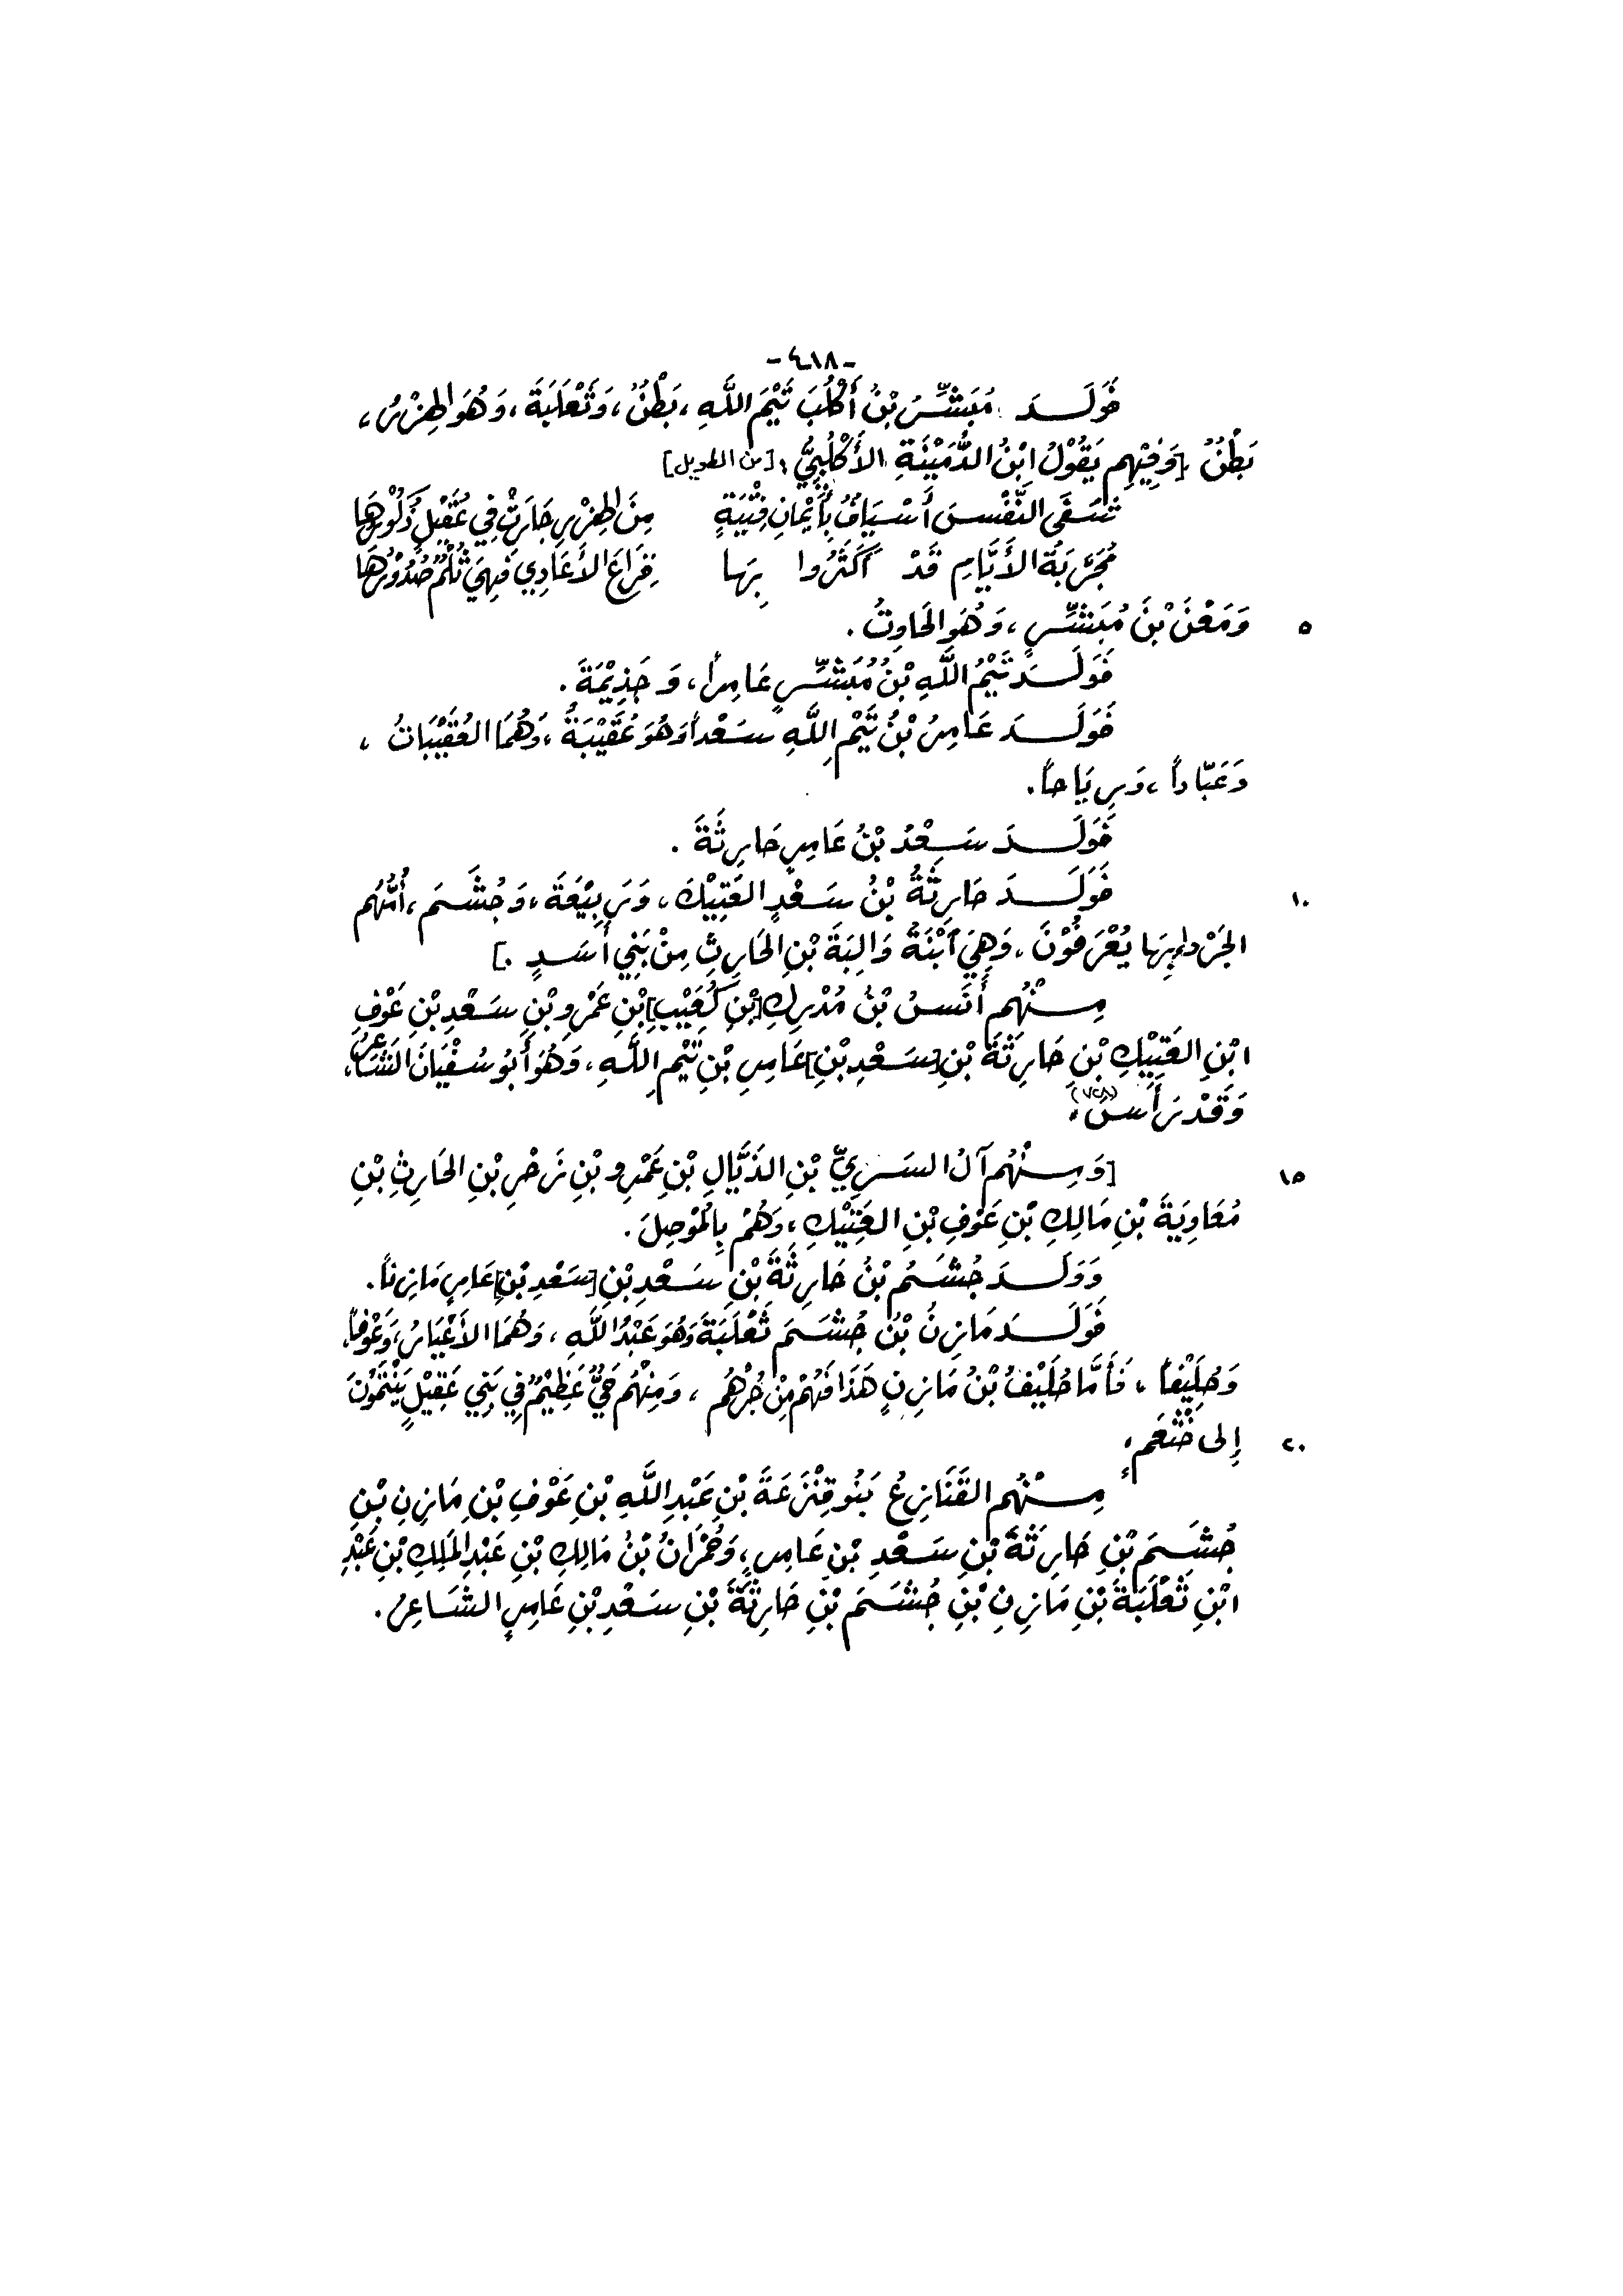 -٤١٨-
فَوَلَدَ مُبَشِّرُ بْنُ أَكْلُبَ تَيْمَ اللَّهِ، بَطْنٌ، وَثَعْلَبَةَ، وَهُوَ الهِزْرُ،
بَطْنٌ [وَفِيْهِم يَقُوْلُ ابْنُ الدُّمَيْنَةِ الأَكْلُبِيُّ: [من الطويل]
تَسَقَى النَّفْسَ أَسْيَافٌ بِأَيْمَانِ فِتْيَةٍ مِنَ الهِزْرِ جَارَتْ فِي عُقَيْلٍ ذُكُوْرُهَا
مُجَرَّبَةُ الأَيَّامِ قَدْ أَكْثَرُوا بِهَا قِرَاعَ الأَعَادِي فَهِيَ ثُلْمٌ صُدُوْرُهَا
٥ وَمَعْنَ بْنَ مُبَشِّرٍ، وَهُوَ الحَاوِتُ.
فَوَلَدَ تَيْمُ اللَّهِ بْنُ مُبَشِّرٍ عَامِراً، وَ جَذِيْمَةَ.
فَوَلَدَ عَامِرُ بْنُ تَيْمِ اللَّهِ سَعْداً وَهُوَ عُقَيْبَةُ، وَهُمَا العُقَيْبَانُ،
وَعَبَّاداً، وَرِيَاحاً.
فَوَلَدَ سَعْدُ بْنُ عَامِرٍ حَارِثَةَ.
١٠ فَوَلَدَ حَارِثَةُ بْنُ سَعْدٍ العَتِيْكَ، وَرَبِيْعَةَ، وَجُشَمَ، أُمُّهُم
الجَزْلاءُ بِهَا يُعْرَفُوْنَ، وَهِيَ ٱبْنَةُ وَالِبَةَ بْنِ الحَارِثِ مِنْ بَنِي أَسَدٍ.]
مِنْهُم أَنَسُ بْنُ مُدْرِكِ [بْنِ كُعَيْبِ] بْنِ عَمْرِو بْنِ سَعْدِ بْنِ عَوْفِ
ابْنِ العَتِيْكِ بْنِ حَارِثَةَ بْنِ [سَعْدِ بْنِ] عَامِرِ بْنِ تَيْمِ اللَّهِ، وَهُوَ أَبُو سُفْيَانَ الشَّاعِرُ،
وَقَدْ رَأَسَ (٧٢٨).
١٥ [وَمِنْهُم آلُ السَّرِيِّ بْنِ الذَيَّالِ بْنِ عَمْرِو بْنِ زَحْرِ بْنِ الحَارِثِ بْنِ
مُعَاوِيَةَ بْنِ مَالِكِ بْنِ عَوْفِ بْنِ العَتِيْكِ، وَهُمْ بِالمَوْصِلَ.
وَوَلَدَ جُشَمُ بْنُ حَارِثَةَ بْنِ سَعْدِ بْنِ [سَعْدِ بْنِ] عَامِرٍ مَازِناً.
فَوَلَدَ مَازِنُ بْنُ جُشَمَ ثَعْلَبَةَ وَهُوَ عَبْدُ اللَّهِ، وَهُمَا الأَعْيَارُ، وَعَوْفاً،
وَحُلَيْفاً، فَأَمَّا حُلَيْفُ بْنُ مَازِنٍ هَذَا فَهُمْ مِنْ جُرْهُم، وَمِنْهُم حَيٌّ عَظِيْمٌ فِي بَنِي عَقِيْلٍ يَنْتَمُوْنَ
٢٠ إِلى خَثْعَمٍ،
مِنْهُم القَنَازِعُ بَنُو قِنْزَعَةَ بْنِ عَبْدِ اللَّهِ بْنِ عَوْفِ بْنِ مَازِنِ بْنِ
جُشَمَ بْنِ حَارِثَةَ بْنِ سَعْدِ بْنِ عَامِرٍ، وَحُمْرَانُ بْنُ مَالِكِ بْنِ عَبْدِ المَلِكِ بْنِ عَبْدِ
ابْنِ ثَعْلَبَةَ بْنِ مَازِنِ بْنِ جُشَمَ بْنِ حَارِثَةَ بْنِ سَعْدِ بْنِ عَامِرٍ الشَّاعِرُ.